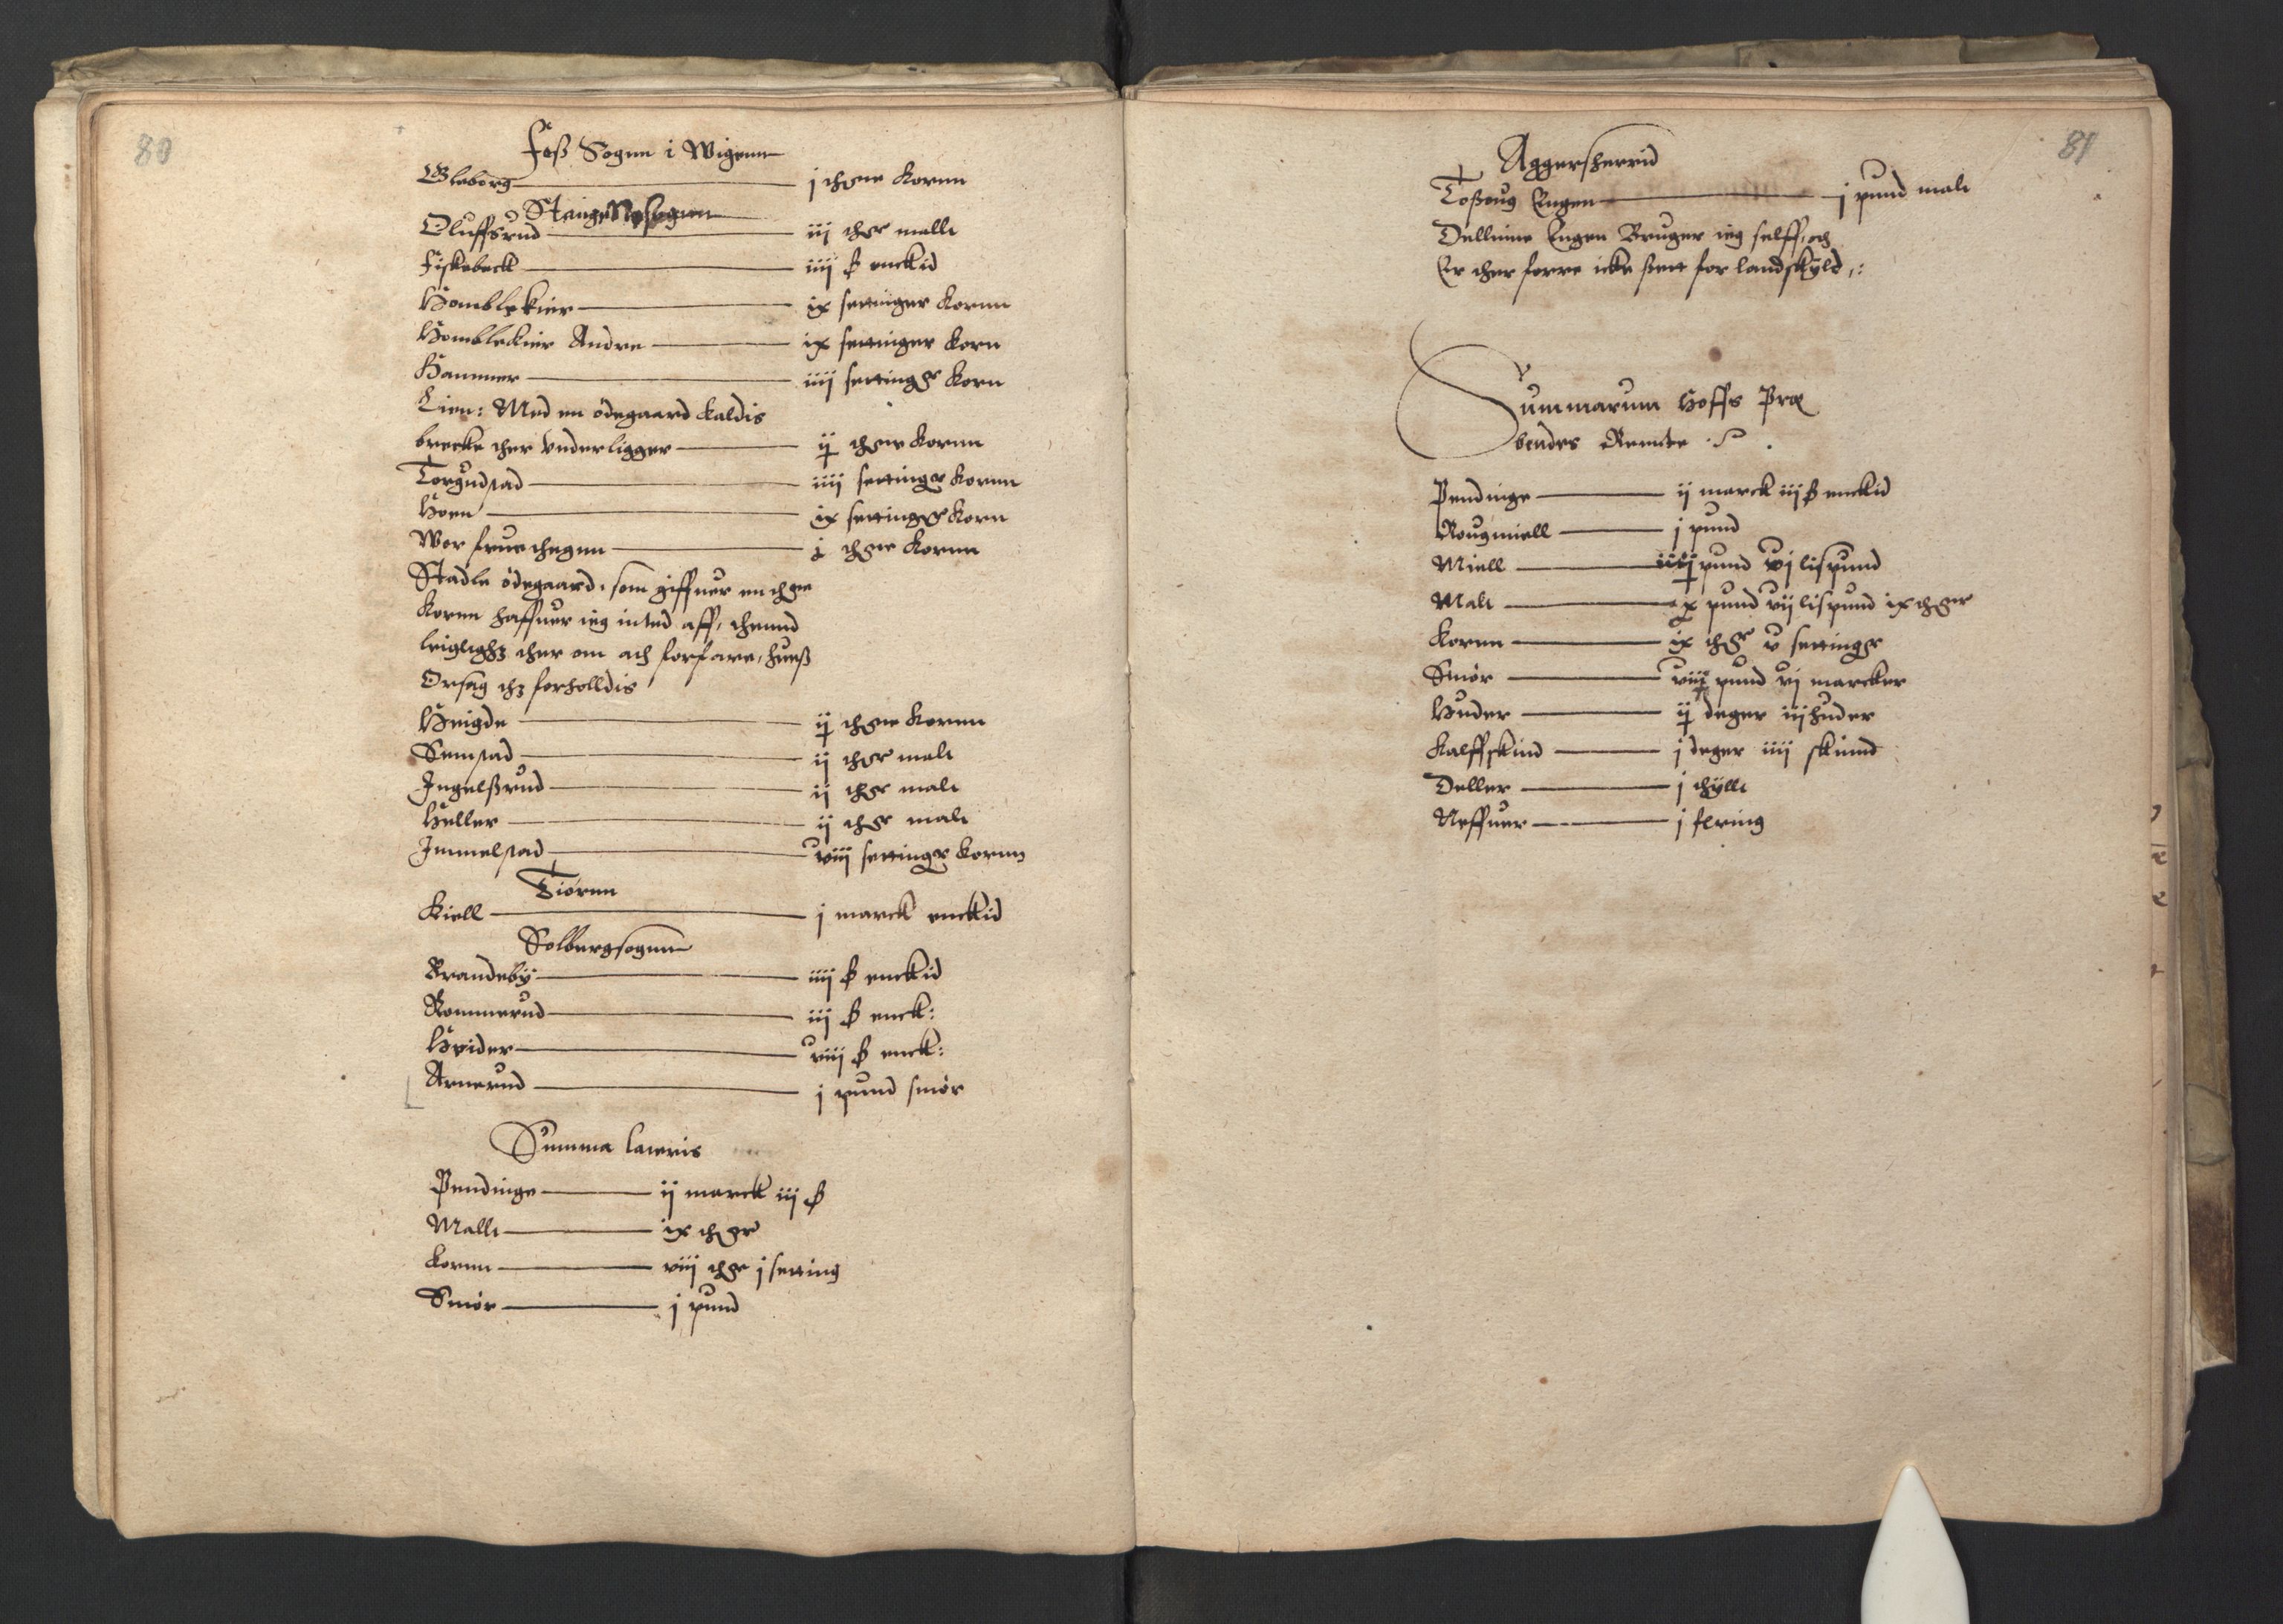 80
Foß Sogen i Wigenn
Bleborg j thøne Kornn
Stange Neß sogenn
Oluffsrud iij thør mallt
Fiskebeck iiij ß enckid
Homblekier ix settinger Kornn
Homblekier Andre ix settinger Korn
Hammer iiij settinger Korn
Lien: Med en ødegaard kaldis
brecke ther vnderligger ij thøne Kornn
Torgudstad iiij settinger Kornn
Hoen ix settinger Korn
Wor fruethegnn j thøne Kornn
Stadle ødegaard, som giffuer en thøne
Kornn haffuer ieg inted aff, thennd
leiglighz ther om ath forfare, hueß
Orsag thz forholldis
Heigde ij thøne Kornn
Semstad ij thør malt
Ingelßrud ij thør malt
Heller ij thør malt
Immelstad viij settinger Kornn
Tiørnn
Kiell j marck enckid
Solbergsogenn
Brandeby iiij ß enckid
Rommerud iij ß enck:
Huider viij ß enck:
Arnerud j pund smør
Summa lateris
Pendinge ij marck iij ß
Mallt ix thør
Kornn viij thør j setting
Smør j pund
81
Aggersherrid
Toßoug Engen j pund malt
Dellinne Engen Bruger ieg selff, och
Er ther forre icke sett for landskyld
Summarum Hoffs Præ
bendes Rennte
Pendinge ij marck iij ß enckid
Rougmiell j pund
Miell iiij pund vj lispund
Malt x pund vij lispund ix thøer
Kornn ix thør v settinger
Smør viij pund vj marcker
Huder ij deger iij huder
Kalffskind j deger iiij skinnd
Deller j thyllt
Neffuer j fering